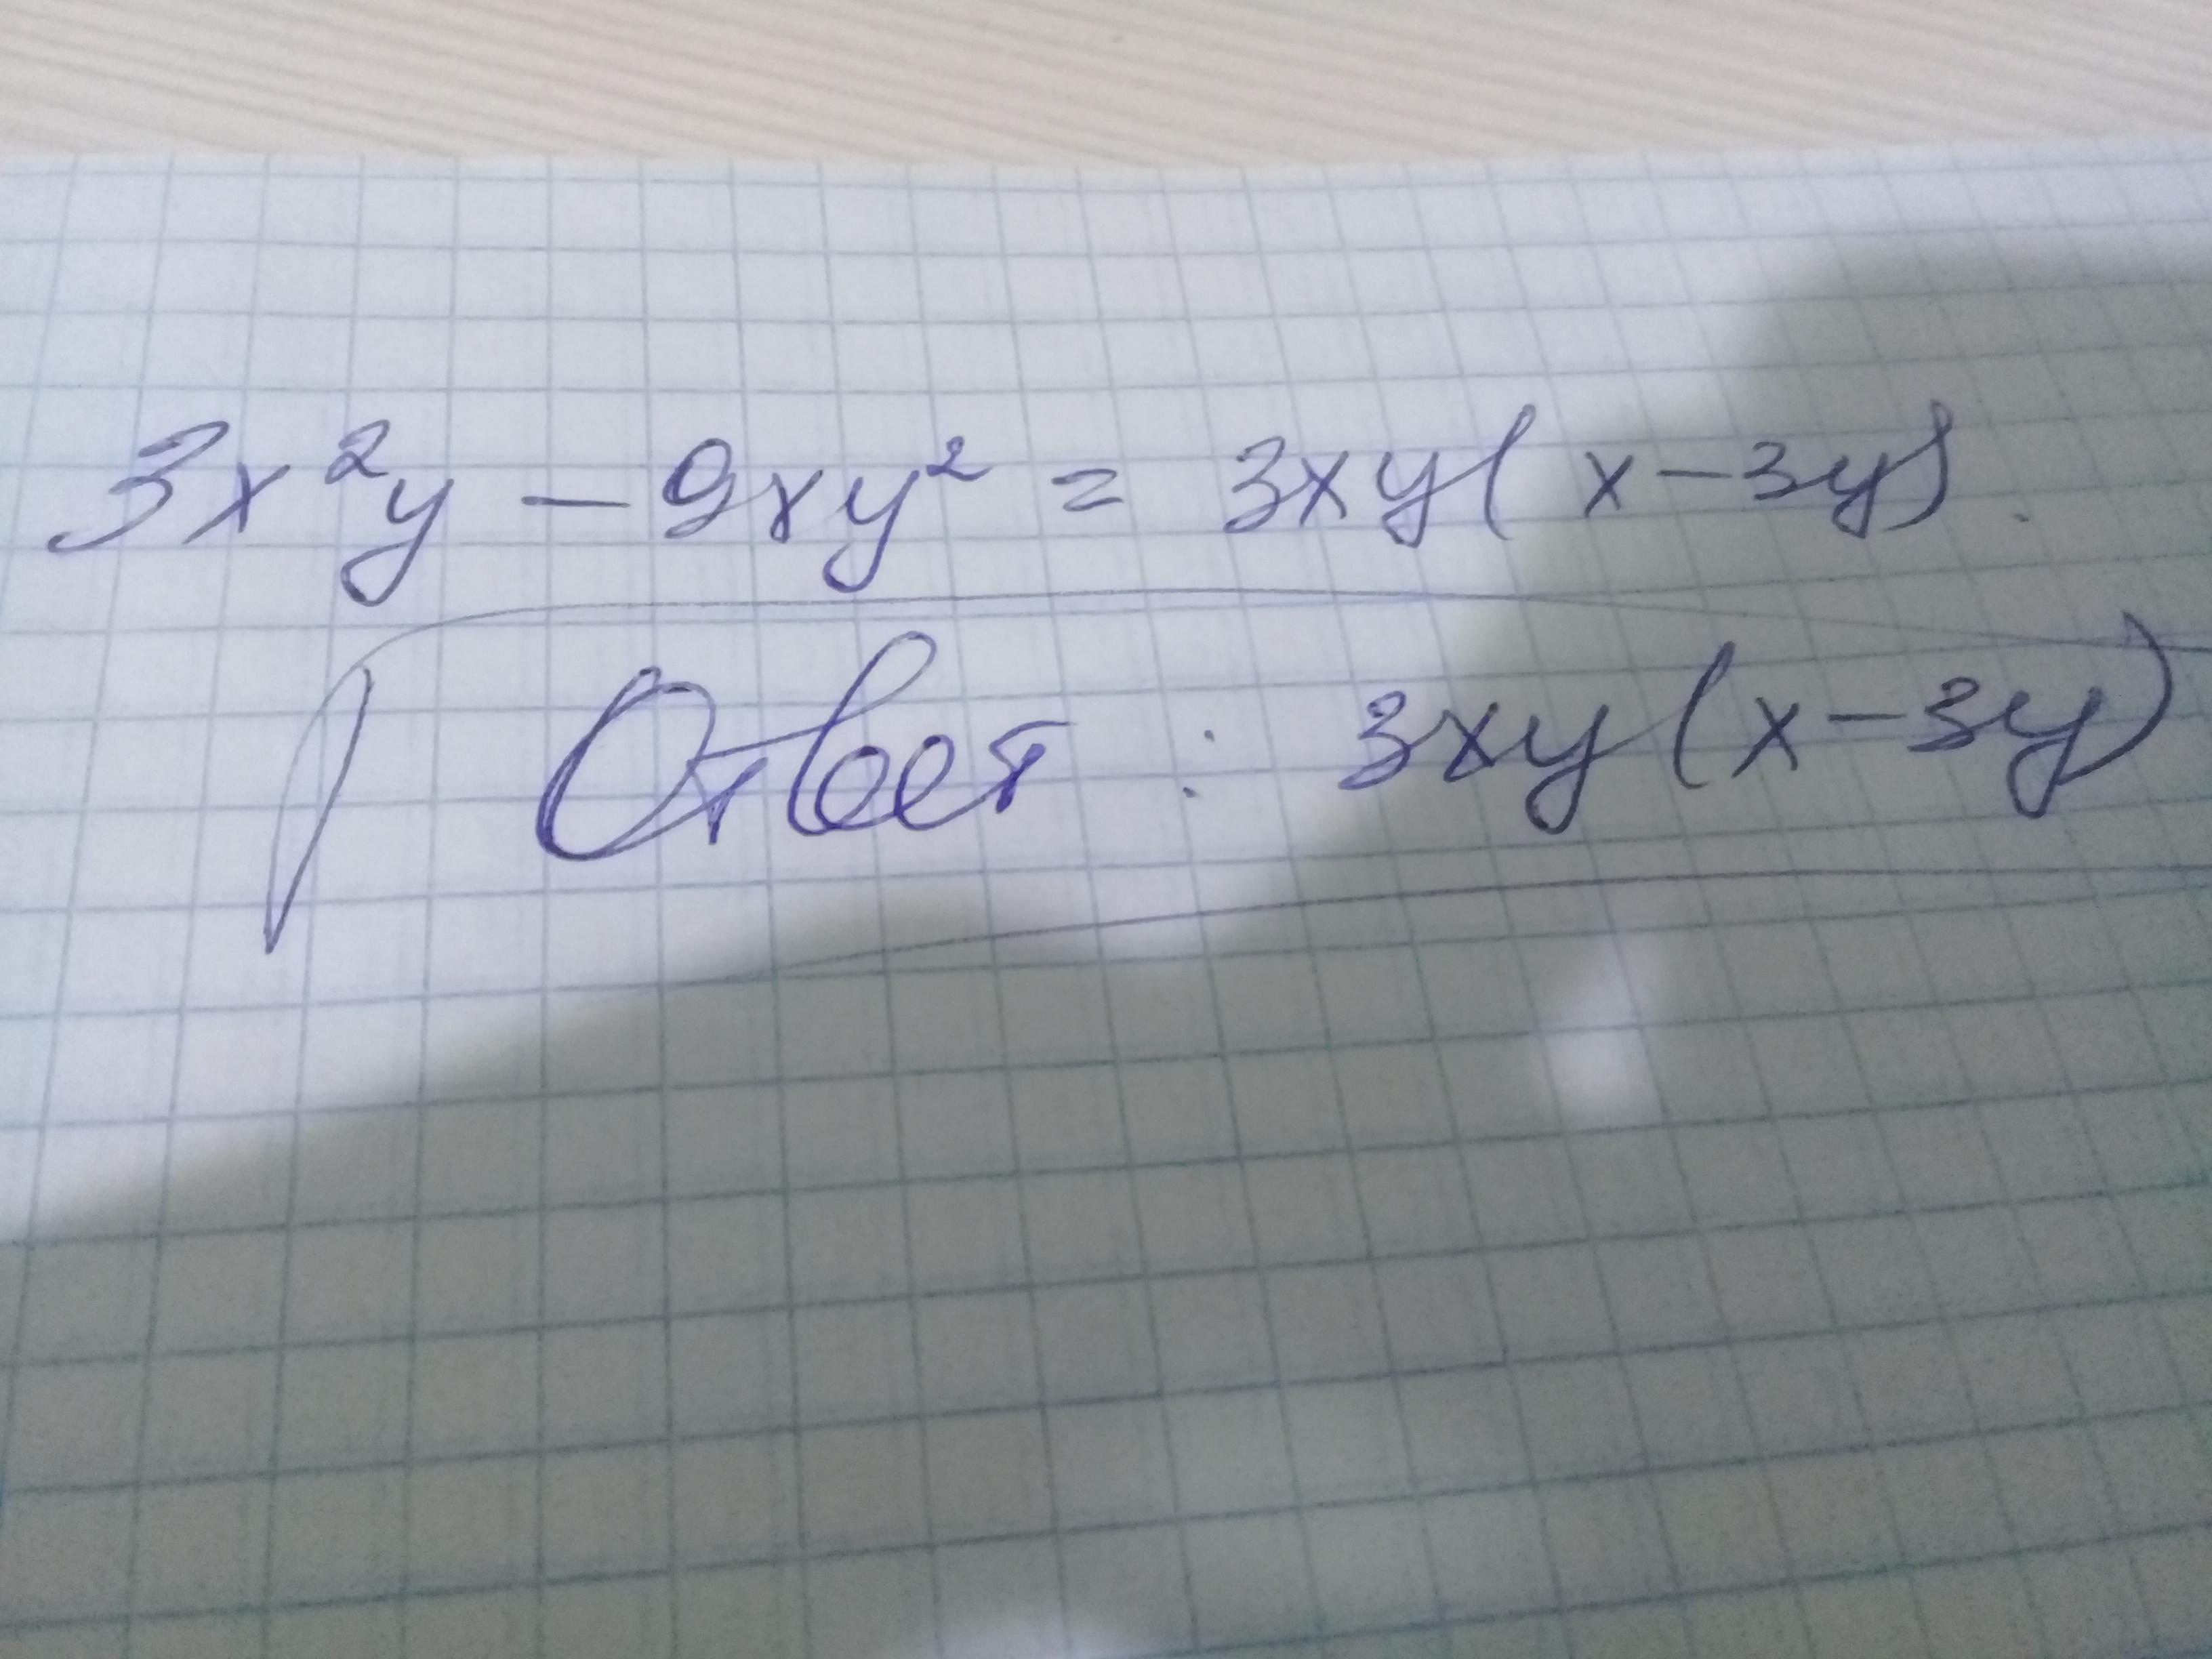 3x²y - 9xy² = 3xy(x-3y).
Ответ: 3xy(x-3y)